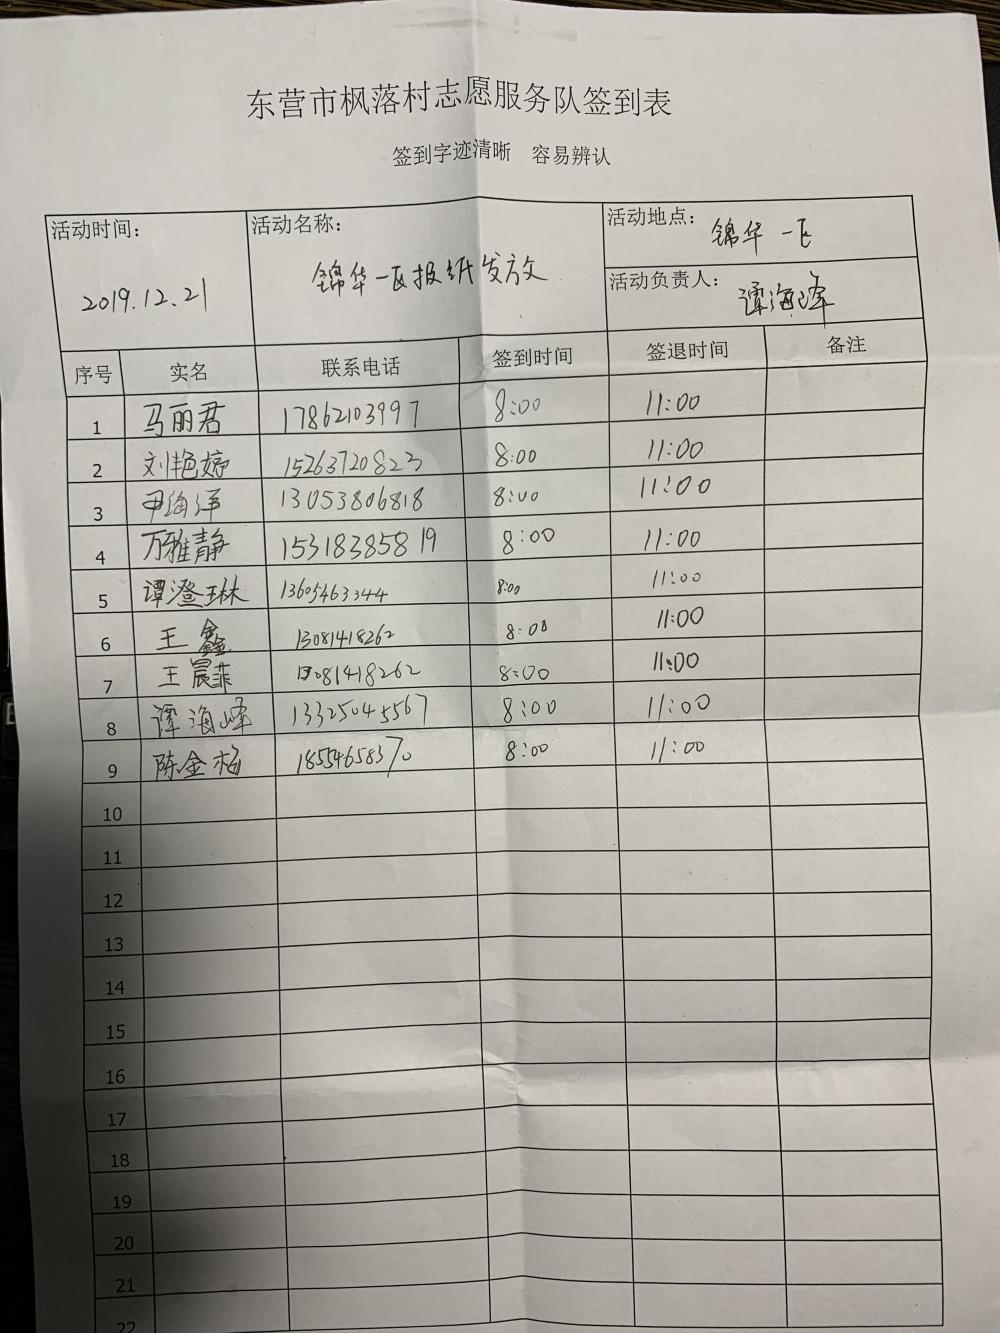 东营市枫落村志愿服务队签到表
签到字迹清晰 容易辨认
活动时间： 活动名称： 活动地点： 锦华一区
2019.12.21 锦华一区报纸发放 活动负责人： 谭海峰
序号 实名 联系电话 签到时间 签退时间 备注
1 马丽君 17862103997 8:00 11:00
2 刘艳婷 15263720823 8:00 11:00
3 尹海洋 13053806818 8:00 11:00
4 万雅静 15318385819 8:00 11:00
5 谭澄琳 13605463344 8:00 11:00
6 王鑫 13081418262 8:00 11:00
7 王晨菲 13081418262 8:00 11:00
8 谭海峰 13325045567 8:00 11:00
9 陈金梅 18554658370 8:00 11:00
10
11
12
13
14
15
16
17
18
19
20
21
22